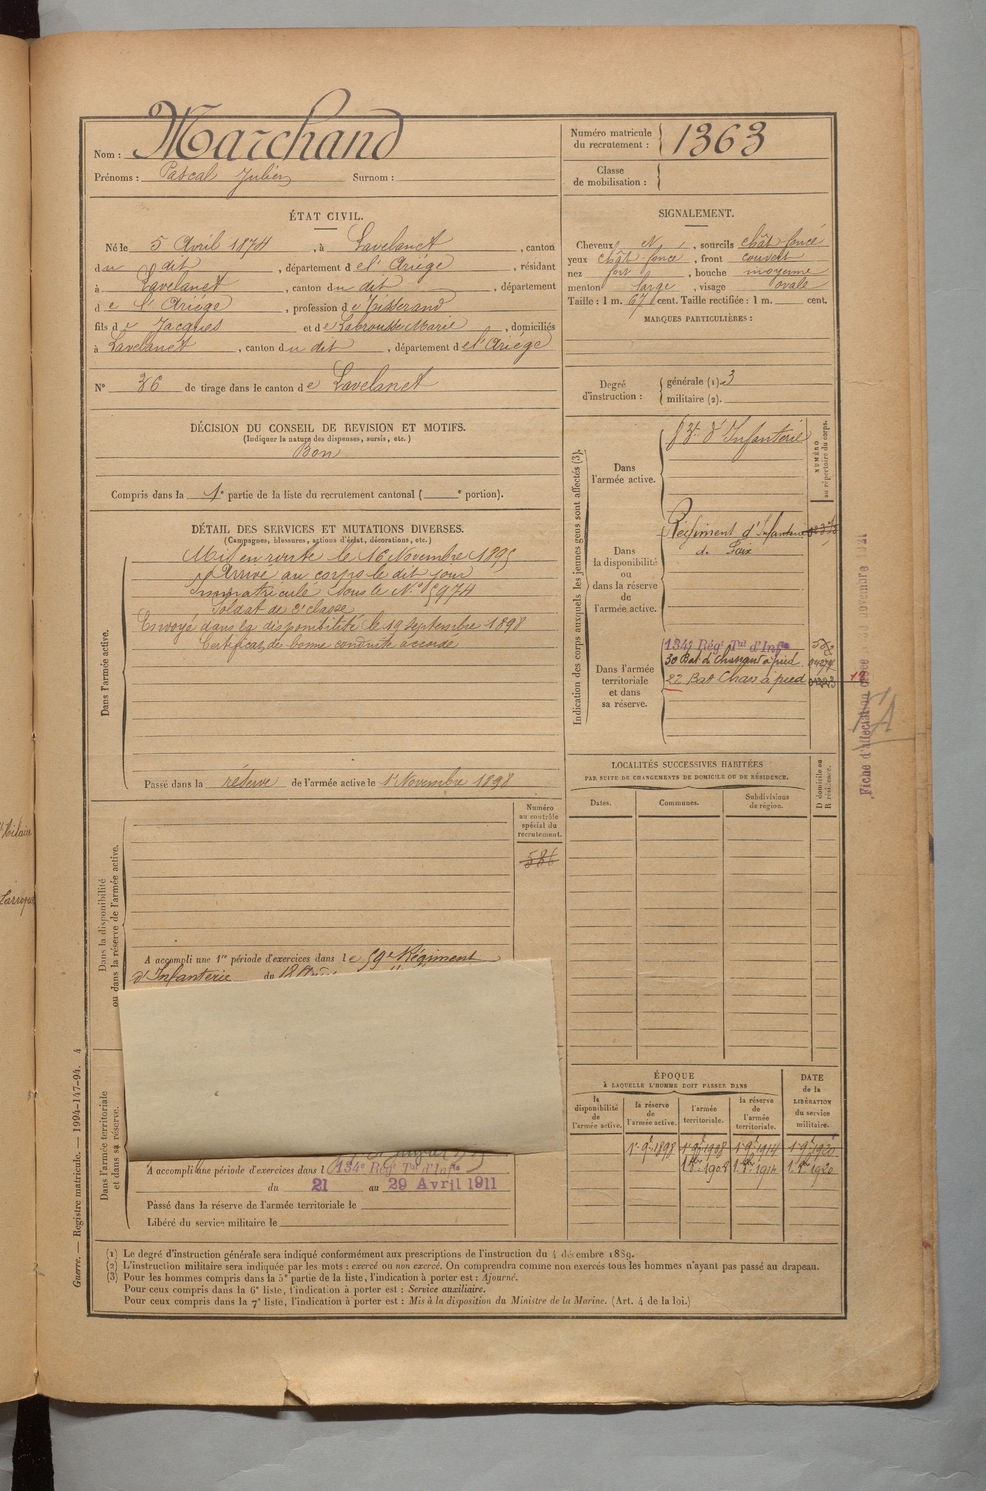 Nom : Marchand
Prénoms : Pascal Julien Surnom :
Numéro matricule du recrutement : 1363
Classe de mobilisation :
ÉTAT CIVIL.
Né le 5 Avril 1874, à Lavelanet, canton
du dit, département de l'Ariège, résidant
à Lavelanet, canton du dit, département
de l'Ariège, profession de Tisserand
fils de Jacques et de Labrousse Marie, domiciliés
à Lavelanet, canton du dit, département de l'Ariège
N° 36 de tirage dans le canton de Lavelanet
SIGNALEMENT.
Cheveux N, sourcils chât foncé
yeux chât foncé, front couvert
nez fort, bouche moyenne
menton large, visage ovale
Taille : 1 m. 67 cent. Taille rectifiée : 1 m. cent.
MARQUES PARTICULIÈRES :
Degré d'instruction : générale (1) 3
militaire (2).
DÉCISION DU CONSEIL DE REVISION ET MOTIFS.
(Indiquer la nature des dispenses, sursis, etc.)
Bon
Compris dans la 1e partie de la liste du recrutement cantonal ( e portion).
DÉTAIL DES SERVICES ET MUTATIONS DIVERSES.
(Campagnes, blessures, actions d'éclat, décorations, etc.)
Dans l'armée active.
Mis en route le 16 Novembre 1895
Arrivé au corps le dit jour
Immatriculé sous le N° 5974
Soldat de 2e classe
Envoyé dans la disponibilité le 19 Septembre 1898
Certificat de bonne conduite accordé
Passé dans la réserve de l'armée active le 1er Novembre 1898
Dans la disponibilité ou dans la réserve de l'armée active.
Numéro au contrôle spécial du recrutement.
586
A accompli une 1re période d'exercices dans le 59e Régiment
d'Infanterie du
Dans l'armée territoriale et dans sa réserve.
A accompli une période d'exercices dans l 134e Régt Tal d'Infie
du 21 au 29 Avril 1911
Passé dans la réserve de l'armée territoriale le
Libéré du service militaire le
Indication des corps auxquels les jeunes gens sont affectés (3).
NUMÉRO au répertoire du corps.
Dans l'armée active.
d'Infanterie
Dans la disponibilité ou dans la réserve de l'armée active.
Régiment d'Infanterie
de Foix
Dans l'armée territoriale et dans sa réserve.
134e Régt Tal d'Infie
30 Bat de Chasseurs à pied
27 Bat Chass à pied
LOCALITÉS SUCCESSIVES HABITÉES
PAR SUITE DE CHANGEMENTS DE DOMICILE OU DE RÉSIDENCE.
Dates. Communes. Subdivisions de région. D domicile ou R résidence.
ÉPOQUE
À LAQUELLE L'HOMME DOIT PASSER DANS
DATE de la LIBÉRATION du service militaire.
la disponibilité de l'armée active.
la réserve de l'armée active.
l'armée territoriale.
la réserve de l'armée territoriale.
1er 9bre 1898 1er 9bre 1908 1er 9bre 1914 1er 9bre 1920
(1) Le degré d'instruction générale sera indiqué conformément aux prescriptions de l'instruction du 4 décembre 1889.
(2) L'instruction militaire sera indiquée par les mots : exercé ou non exercé. On comprendra comme non exercés tous les hommes n'ayant pas passé au drapeau.
(3) Pour les hommes compris dans la 5e partie de la liste, l'indication à porter est : Ajourné.
Pour ceux compris dans la 6e liste, l'indication à porter est : Service auxiliaire.
Pour ceux compris dans la 7e liste, l'indication à porter est : Mis à la disposition du Ministre de la Marine. (Art. 4 de la loi.)
Guerre. — Registre matricule. — 1994-147-94. 4
Fiche d'affectation